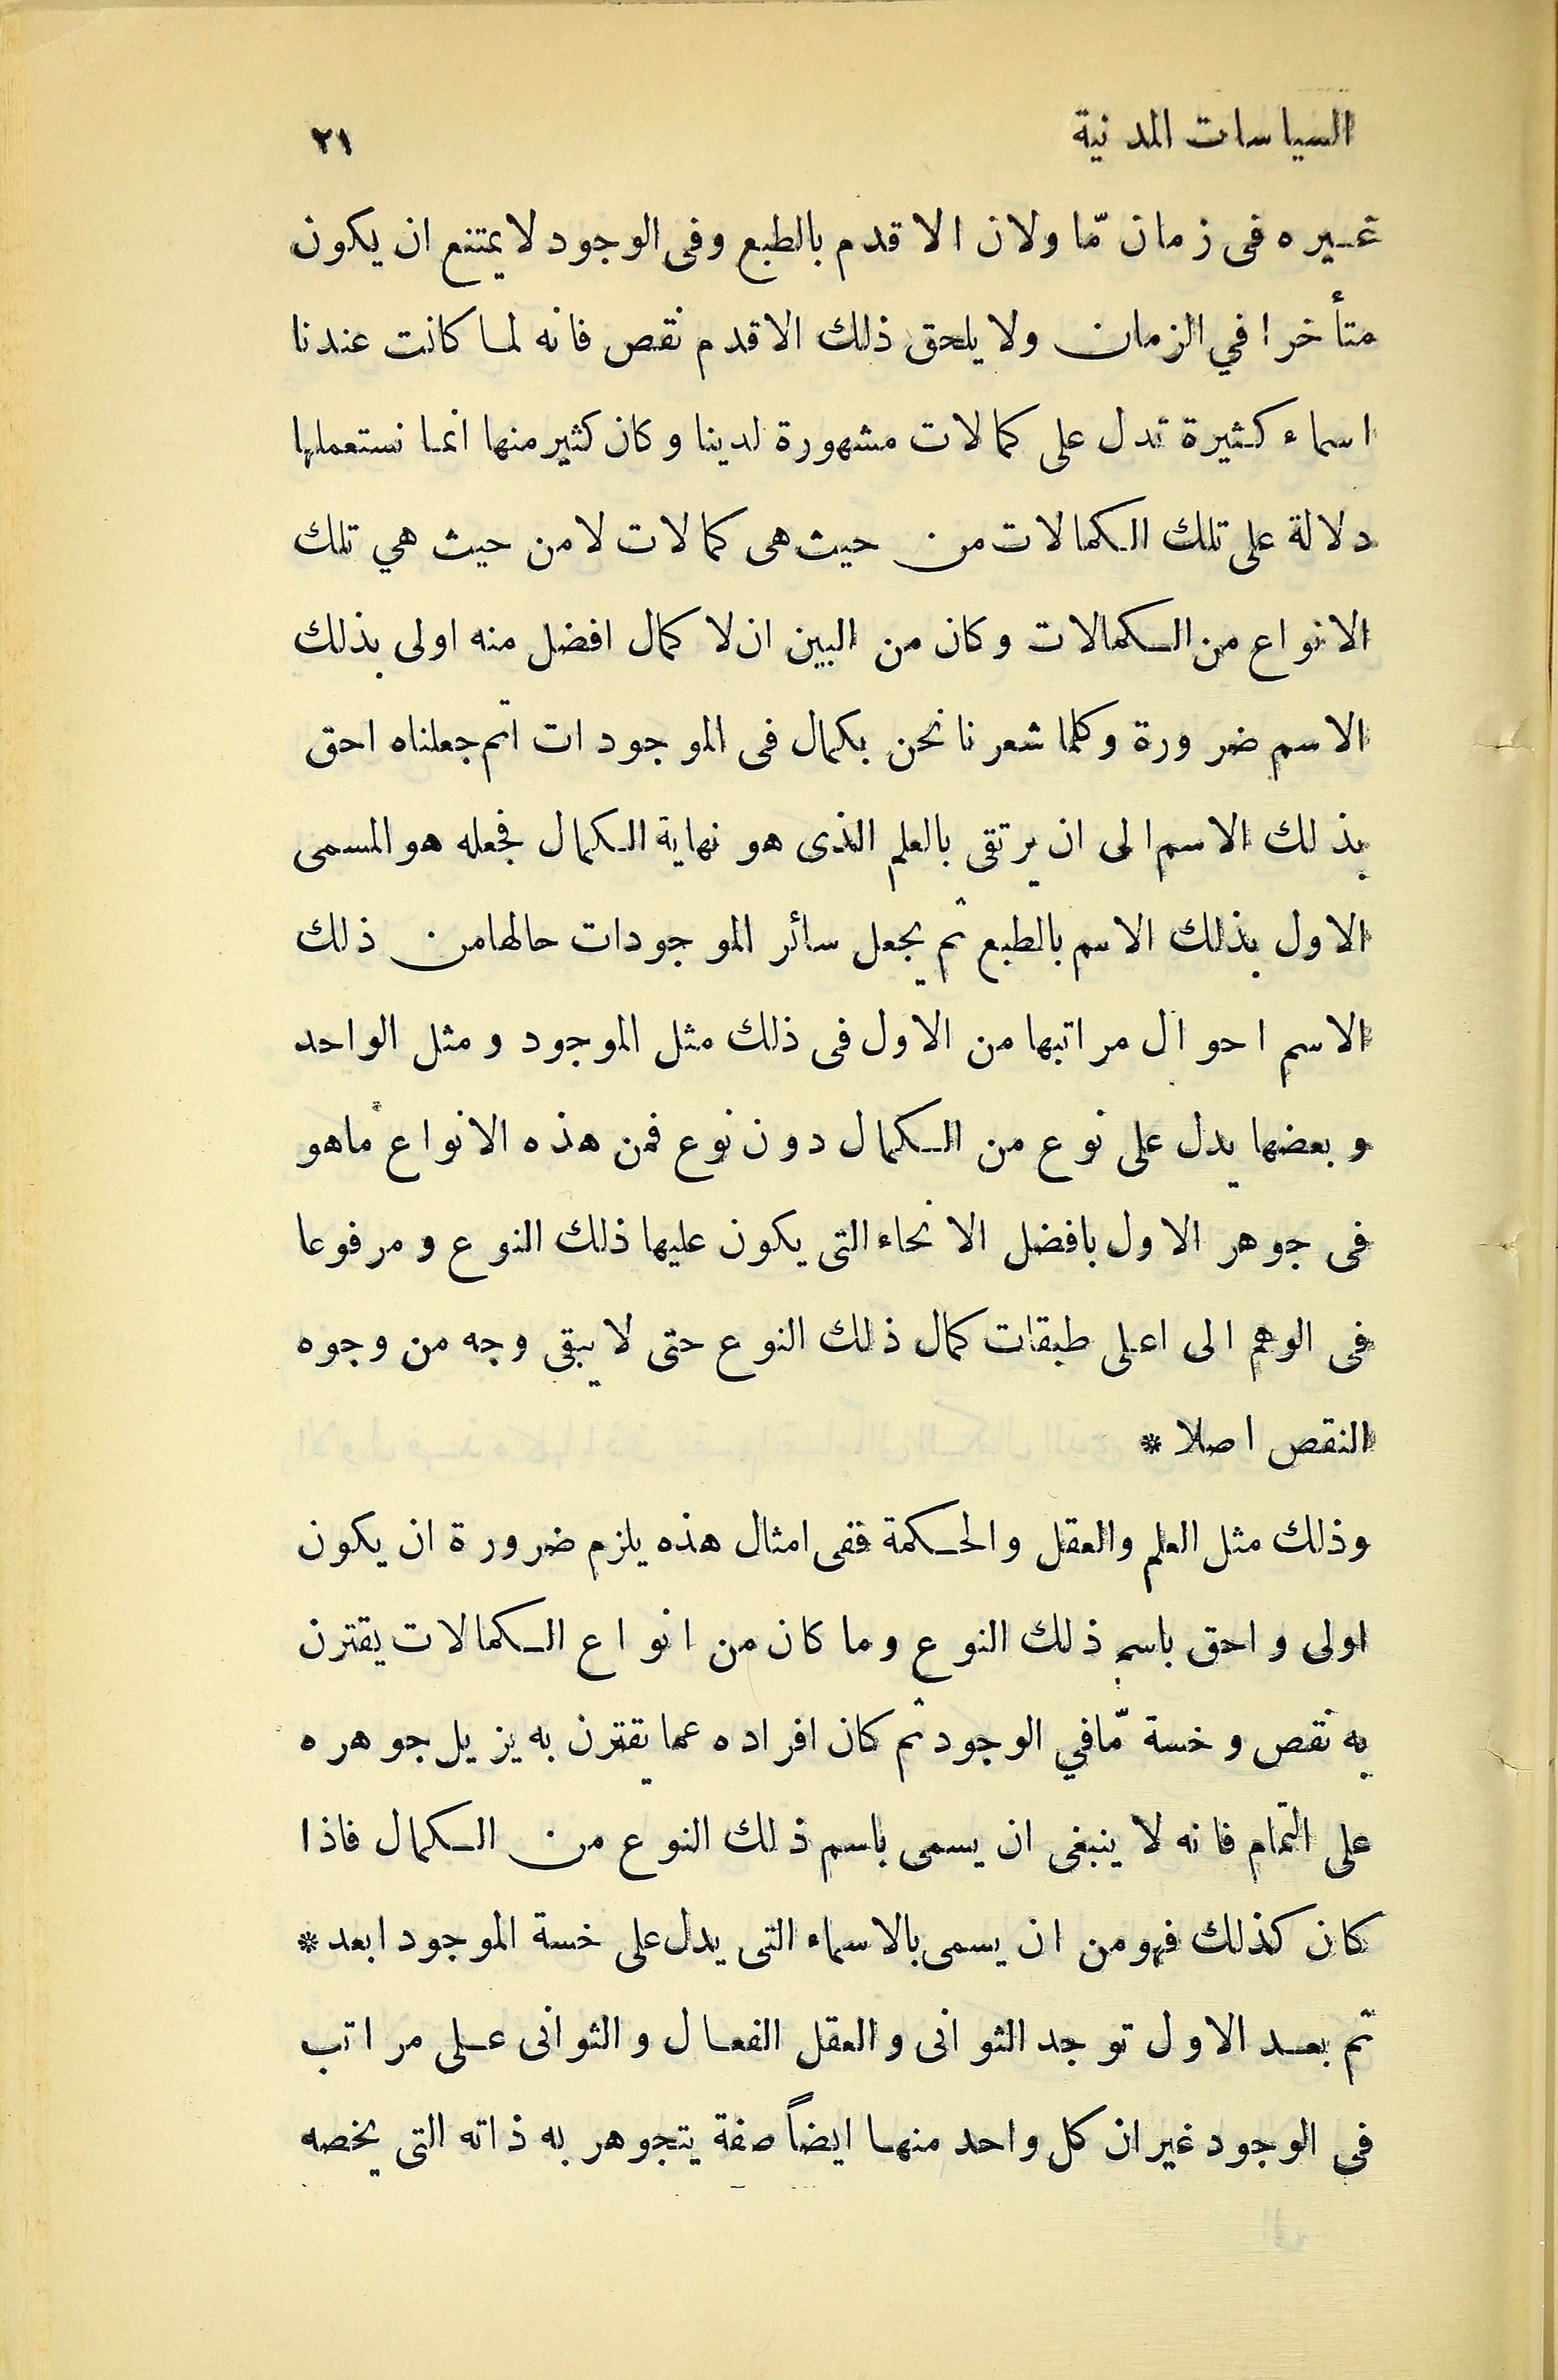 السياسات المدنية ٢١
غيره فى زمان مّا ولان الاقدم بالطبع وفى الوجود لايمتنع ان يكون
متأخرا في الزمان ولا يلحق ذلك الاقدم نقص فانه لما كانت عندنا
اسماء كثيرة تدل على كمالات مشهورة لدينا وكان كثير منها انما نستعملها
دلالة على تلك الكمالات من حيث هى كمالات لامن حيث هي تلك
الانواع من الكمالات وكان من البين ان لا كمال افضل منه اولى بذلك
الاسم ضرورة وكلما شعرنا نحن بكمال فى الموجودات اتم جعلناه احق
بذلك الاسم الى ان يرتقى بالعلم الذى هو نهاية الكمال فجعله هو المسمى
الاول بذلك الاسم بالطبع ثم يجعل سائر الموجودات حالها من ذلك
الاسم احوال مراتبها من الاول فى ذلك مثل الموجود ومثل الواحد
وبعضها يدل على نوع من الكمال دون نوع فمن هذه الانواع ماهو
فى جوهر الاول بافضل الانحاء التى يكون عليها ذلك النوع ومرفوعا
فى الوهم الى اعلى طبقات كمال ذلك النوع حتى لا يبقى وجه من وجوه
النقص اصلا *
وذلك مثل العلم والعقل والحكمة ففى امثال هذه يلزم ضرورة ان يكون
اولى واحق باسم ذلك النوع وما كان من انواع الكمالات يقترن
به نقص وخسة مّا في الوجود ثم كان افراده عما يقترن به يزيل جوهره
على التمام فانه لا ينبغى ان يسمى باسم ذلك النوع من الكمال فاذا
كان كذلك فهو من ان يسمى بالاسماء التى يدل على خسة الموجود ابعد *
ثم بعد الاول توجد الثوانى والعقل الفعال والثوانى على مراتب
فى الوجود غير ان كل واحد منها ايضاً صفة يتجوهر به ذاته التى يخصه